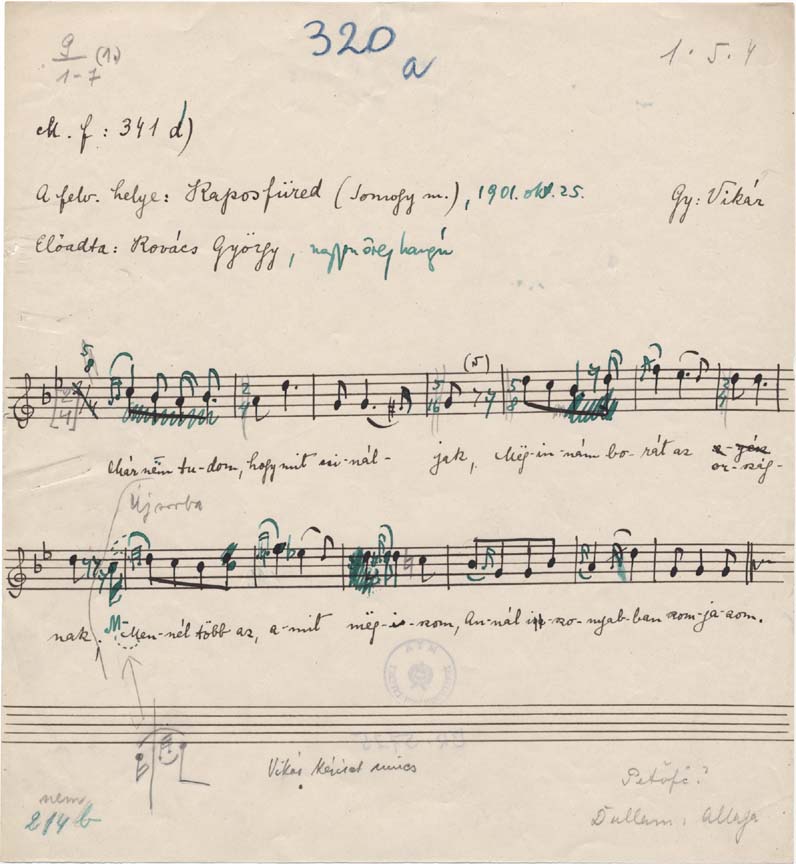 9/1-7 (1.)
320
a
1. 5. 4
M. f: 341 d)
A felv. helye: Kaposfüred (Somogy m.), 1901. okt. 25. Gy: Vikár
Előadta: Kovács György, nagyon öreg hangú
5/8
2/4
2/4
5/16
(5)
5/8
2/4
Már nem tu-dom, hogy mit csi-nál- jak, Meg-in-nám bo-rát az or-szág-
Új sorba
nak. M- Men-nél több az, a-mit meg-i-szom, An-nál i-szo-nyab-ban szom-ja-zom.
Vikár kézirat nincs
Petőfi?
Dallam: Allaga
nem
214 b